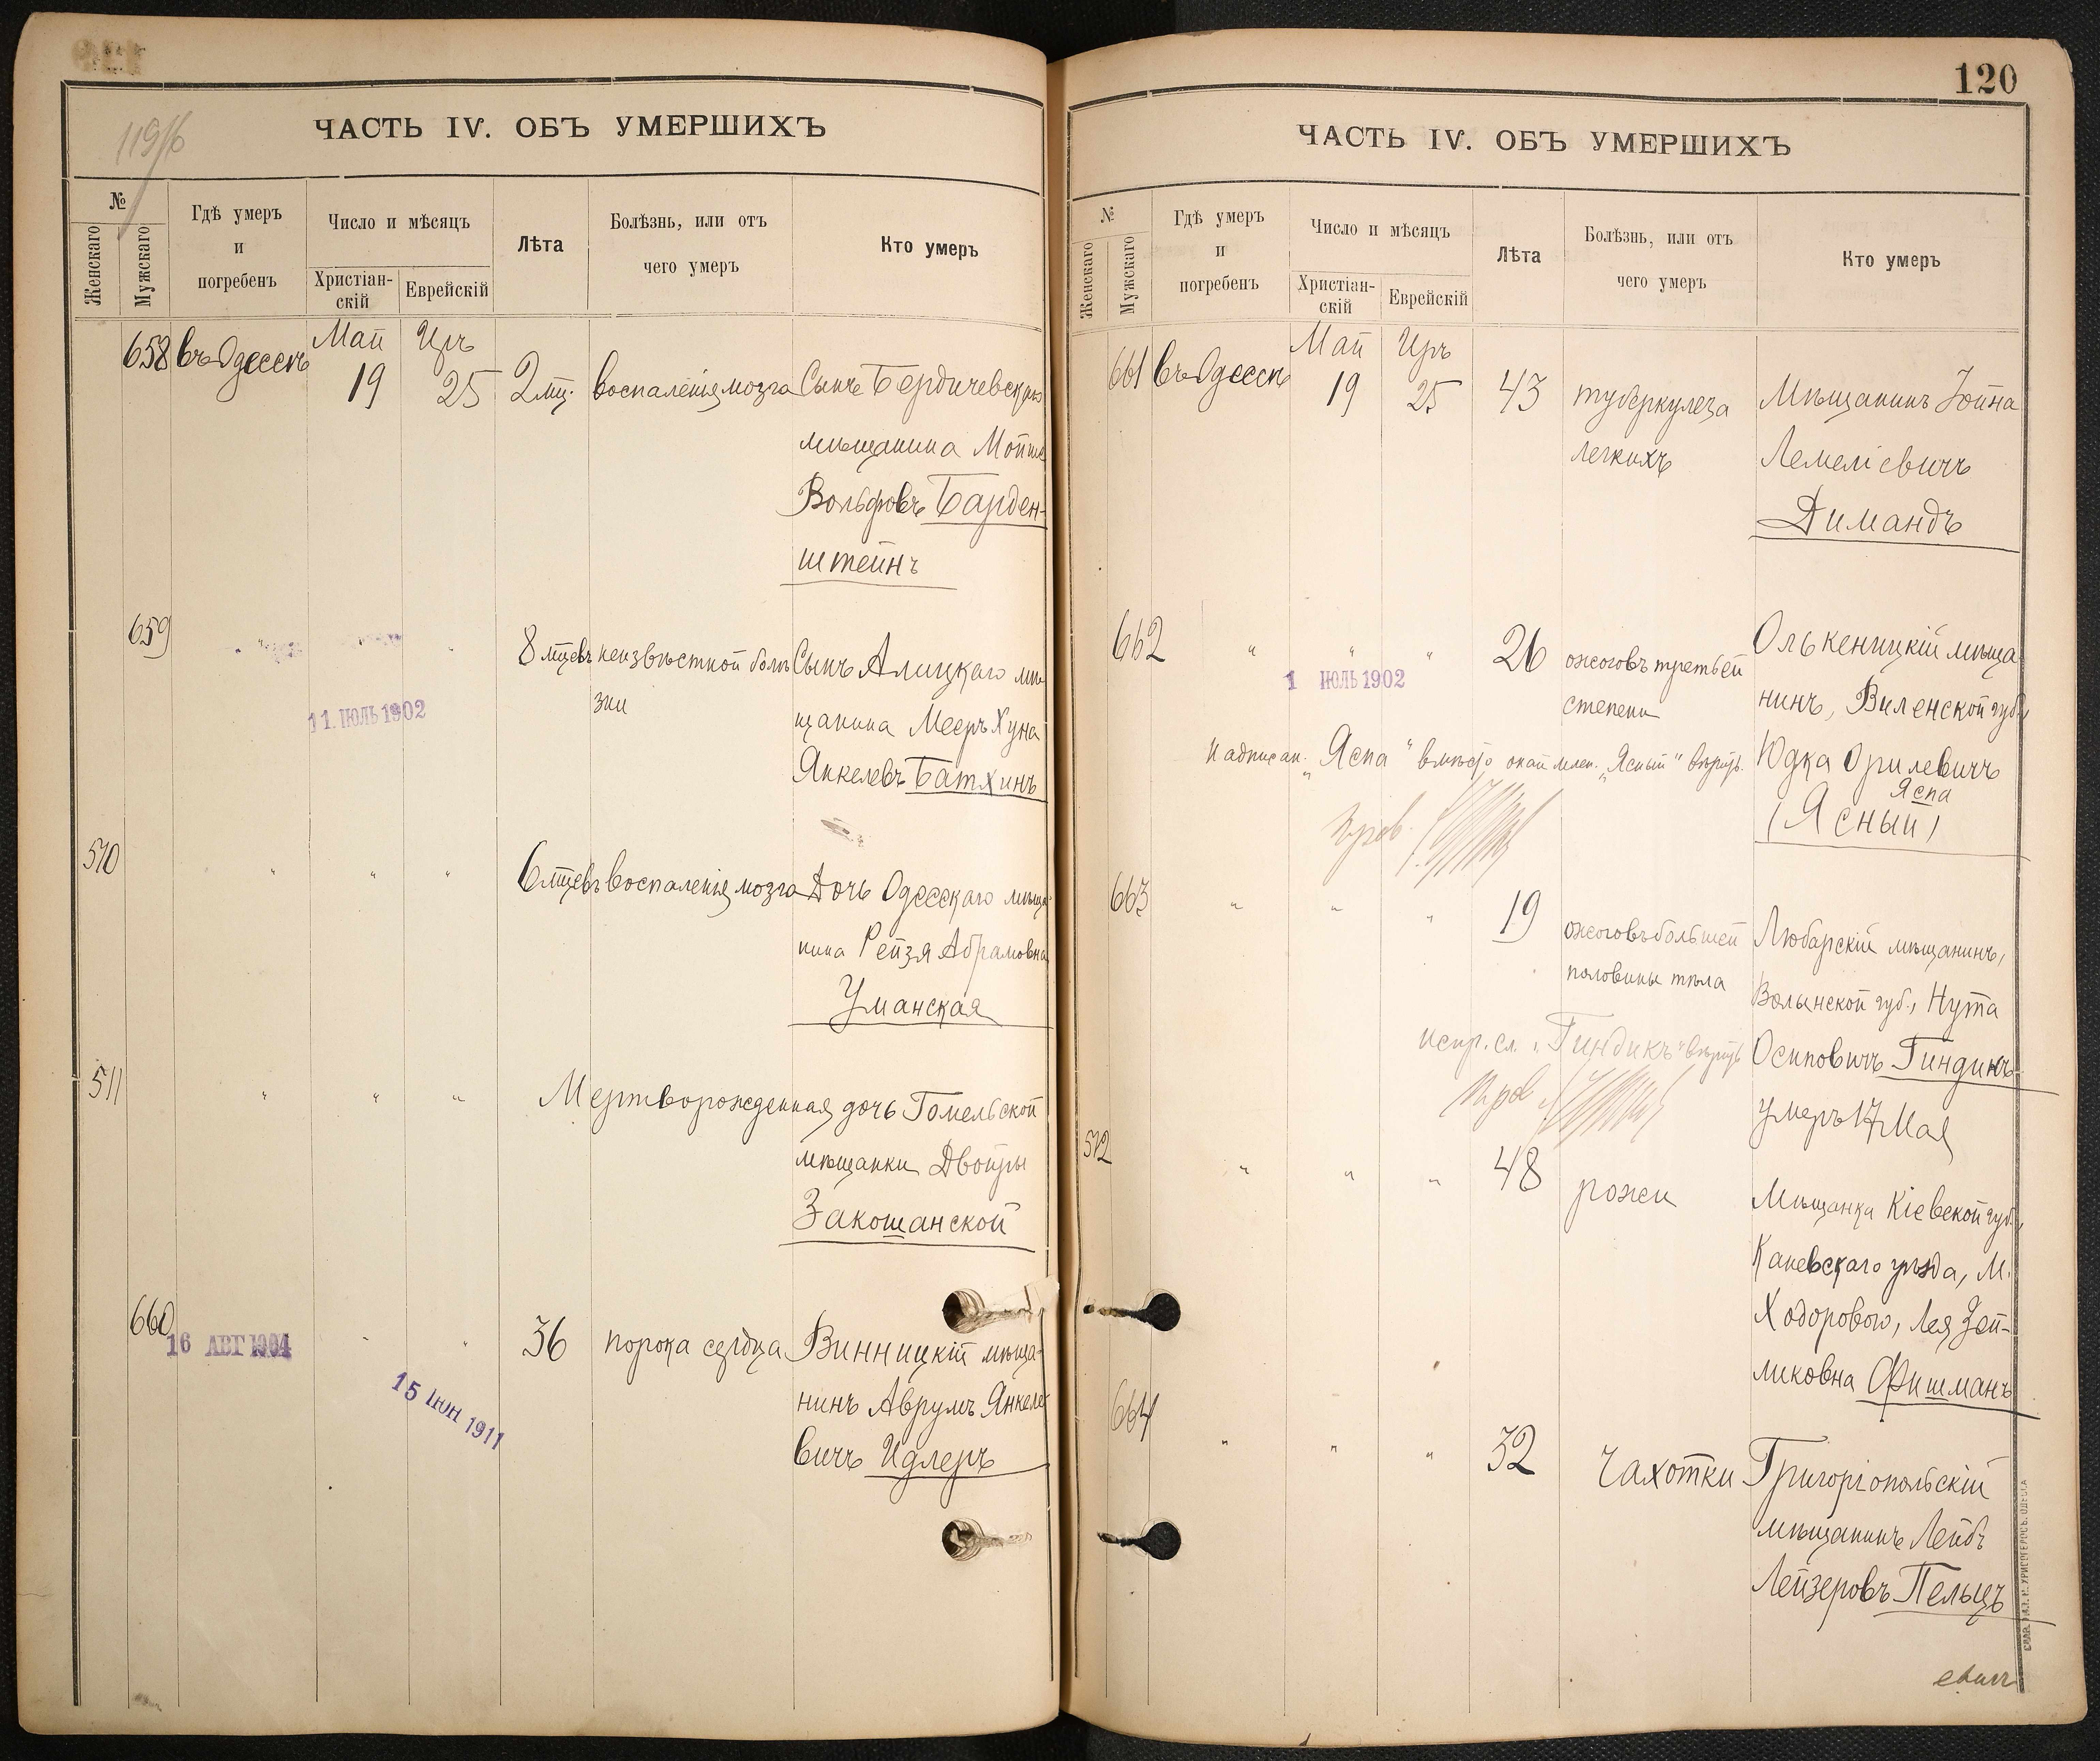 119/б
ЧАСТЬ IV. ОБЪ УМЕРШИХЪ
№
Женскаго
Мужскаго
Гдѣ умеръ
и
погребенъ
Число и мѣсяцъ
Христіан-
скій
Еврейскій
Лѣта
Болѣзнь, или отъ
чего умеръ
Кто умеръ
658 въ Одессѣ Май 19 Иръ 25 2 мц. воспаленія мозга Сынъ Бердичевскаго
мѣщанина Мойше
Вольфовъ Барден-
штейнъ
659 " " 8 мцевъ неизвѣстной болѣ Сынъ Алицкаго мѣ-
зни
щанина Мееръ Хуна
11. ІЮЛЬ 1902
Янкелевъ Батхинъ
510 " " " 6 мцевъ воспаленія мозга Дочь Одесскаго мѣща-
нина Рейзя Абрамовна
Уманская
511 " " " Мертворожденная дочь Гомельской
мѣщанки Двойры
Закошанской
660 " " 36 порока сердца Винницкій мѣща-
16 АВГ 1904
15 ІЮН 1911
нинъ Аврумъ Янкеле
вичъ Идлеръ
120
ЧАСТЬ IV. ОБЪ УМЕРШИХЪ
№
Женскаго
Мужскаго
Гдѣ умеръ
и
погребенъ
Число и мѣсяцъ
Христіан-
скій
Еврейскій
Лѣта
Болѣзнь, или отъ
чего умеръ
Кто умеръ
661 въ Одессѣ Май 19 Иръ 25 43 туберкулеза Мѣщанинъ Іойна
легкихъ Лемеліевичъ
Димандъ
662 " " " 26 ожоговъ третьей Олькеницкій мѣща-
1 ІЮЛЬ 1902
степени нинъ, Виленской губ.,
Надписан. „Яспа" вмѣсто „Ясный" вѣрить. Юдка Орилевичъ
Яспа
(Ясный)
663 " " " 19 ожоговъ большей Любарскій мѣщанинъ,
половины тѣла Волынской губ., Нута
испр. сл. „Гиндикъ" вѣрить Осиповичъ Гиндикъ
умеръ 17 Мая
512 " " " 48 рожи Мѣщанка Кіевской губ.,
Каневскаго уѣзда, М.
Ходорового, Лея Зей-
ликовна Фишманъ
664 " " " 32 Чахотки Григоріопольскій
мѣщанинъ Лейбъ
Лейзеровъ Пельцъ